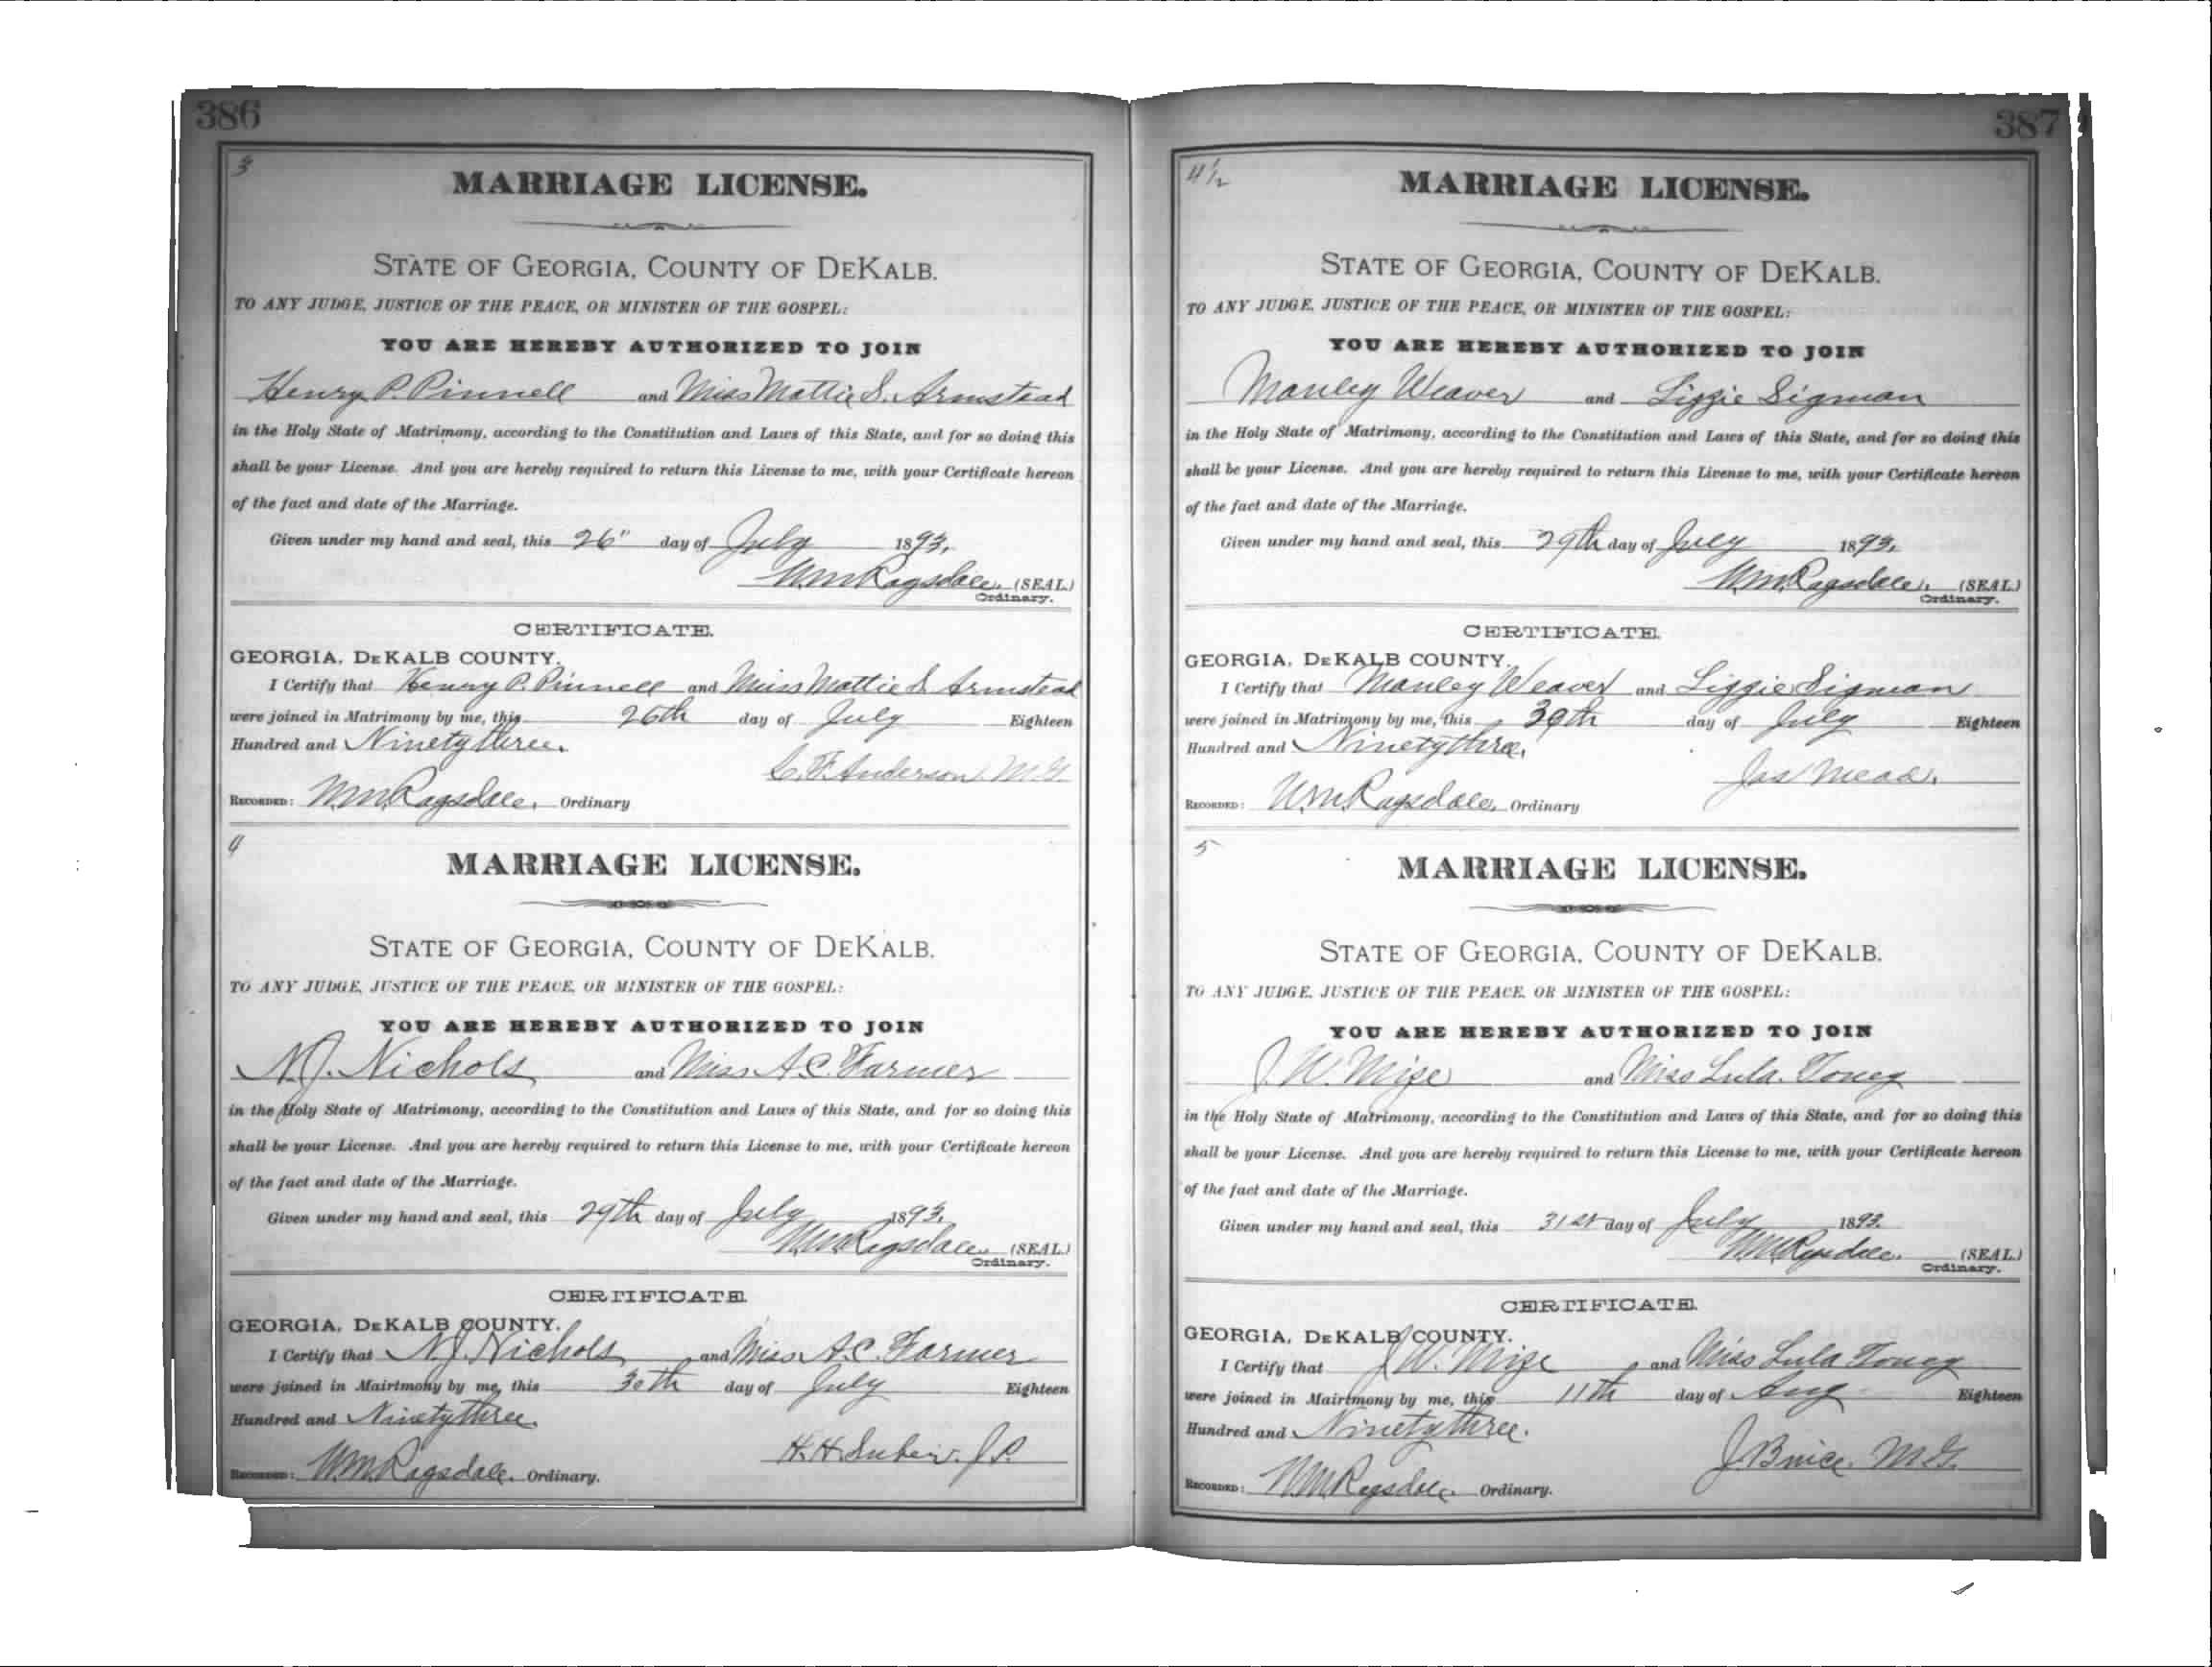 386
3
MARRIAGE LICENSE.
STATE OF GEORGIA, COUNTY OF DEKALB.
TO ANY JUDGE, JUSTICE OF THE PEACE, OR MINISTER OF THE GOSPEL:
YOU ARE HEREBY AUTHORIZED TO JOIN
Henry P. Pinnell and Miss Mattie S. Armstead
in the Holy State of Matrimony, according to the Constitution and Laws of this State, and for so doing this
shall be your License. And you are hereby required to return this License to me, with your Certificate hereon
of the fact and date of the Marriage.
Given under my hand and seal, this 26" day of July 1893.
W.M. Ragsdale. (SEAL)
Ordinary.
CERTIFICATE.
GEORGIA, DEKALB COUNTY.
I Certify that Henry P. Pinnell and Miss Mattie S Armstead
were joined in Matrimony by me, this 26th day of July Eighteen
Hundred and Ninety three.
C. F. Anderson. M.G.
RECORDED: W.M. Ragsdale. Ordinary
4
MARRIAGE LICENSE.
STATE OF GEORGIA, COUNTY OF DEKALB.
TO ANY JUDGE, JUSTICE OF THE PEACE, OR MINISTER OF THE GOSPEL:
YOU ARE HEREBY AUTHORIZED TO JOIN
N.J. Nichols and Miss A.C. Farmer
in the Holy State of Matrimony, according to the Constitution and Laws of this State, and for so doing this
shall be your License. And you are hereby required to return this License to me, with your Certificate hereon
of the fact and date of the Marriage.
Given under my hand and seal, this 29th day of July 1893.
W.M. Ragsdale. (SEAL)
Ordinary.
CERTIFICATE.
GEORGIA, DEKALB COUNTY.
I Certify that N.J. Nichols and Miss A.C. Farmer
were joined in Mairtmony by me, this 30th day of July Eighteen
Hundred and Ninety three.
H.H. J.P.
RECORDED: W.M. Ragsdale. Ordinary.
387
4 1/2
MARRIAGE LICENSE.
STATE OF GEORGIA, COUNTY OF DEKALB.
TO ANY JUDGE, JUSTICE OF THE PEACE, OR MINISTER OF THE GOSPEL:
YOU ARE HEREBY AUTHORIZED TO JOIN
Manley Weaver and Lizzie Sigman
in the Holy State of Matrimony, according to the Constitution and Laws of this State, and for so doing this
shall be your License. And you are hereby required to return this License to me, with your Certificate hereon
of the fact and date of the Marriage.
Given under my hand and seal, this 29th day of July 1893.
W.M. Ragsdale. (SEAL)
Ordinary.
CERTIFICATE.
GEORGIA, DEKALB COUNTY.
I Certify that Manley Weaver and Lizzie Sigman
were joined in Matrimony by me, this 30th day of July Eighteen
Hundred and Ninety three,
Jas Mead.
RECORDED: W.M. Ragsdale. Ordinary
5
MARRIAGE LICENSE.
STATE OF GEORGIA, COUNTY OF DEKALB.
TO ANY JUDGE, JUSTICE OF THE PEACE, OR MINISTER OF THE GOSPEL:
YOU ARE HEREBY AUTHORIZED TO JOIN
J.W. Mize and Miss Lula. Toney
in the Holy State of Matrimony, according to the Constitution and Laws of this State, and for so doing this
shall be your License. And you are hereby required to return this License to me, with your Certificate hereon
of the fact and date of the Marriage.
Given under my hand and seal, this 31st day of July 1893.
W.M. Ragsdale. (SEAL)
Ordinary.
CERTIFICATE.
GEORGIA, DEKALB COUNTY.
I Certify that J.W. Mize and Miss Lula Toney
were joined in Mairtmony by me, this 11th day of Aug Eighteen
Hundred and Ninety three.
M.G.
RECORDED: W.M. Ragsdale. Ordinary.